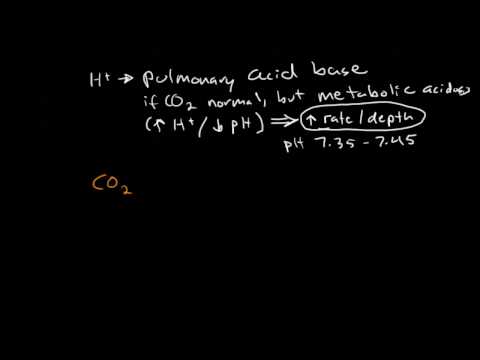 H⁺ → pulmonary acid base
if CO₂ normal, but metabolic acidosis
(↑ H⁺/↓ pH) ⇒ ↑ rate/depth
pH 7.35 - 7.45
CO₂